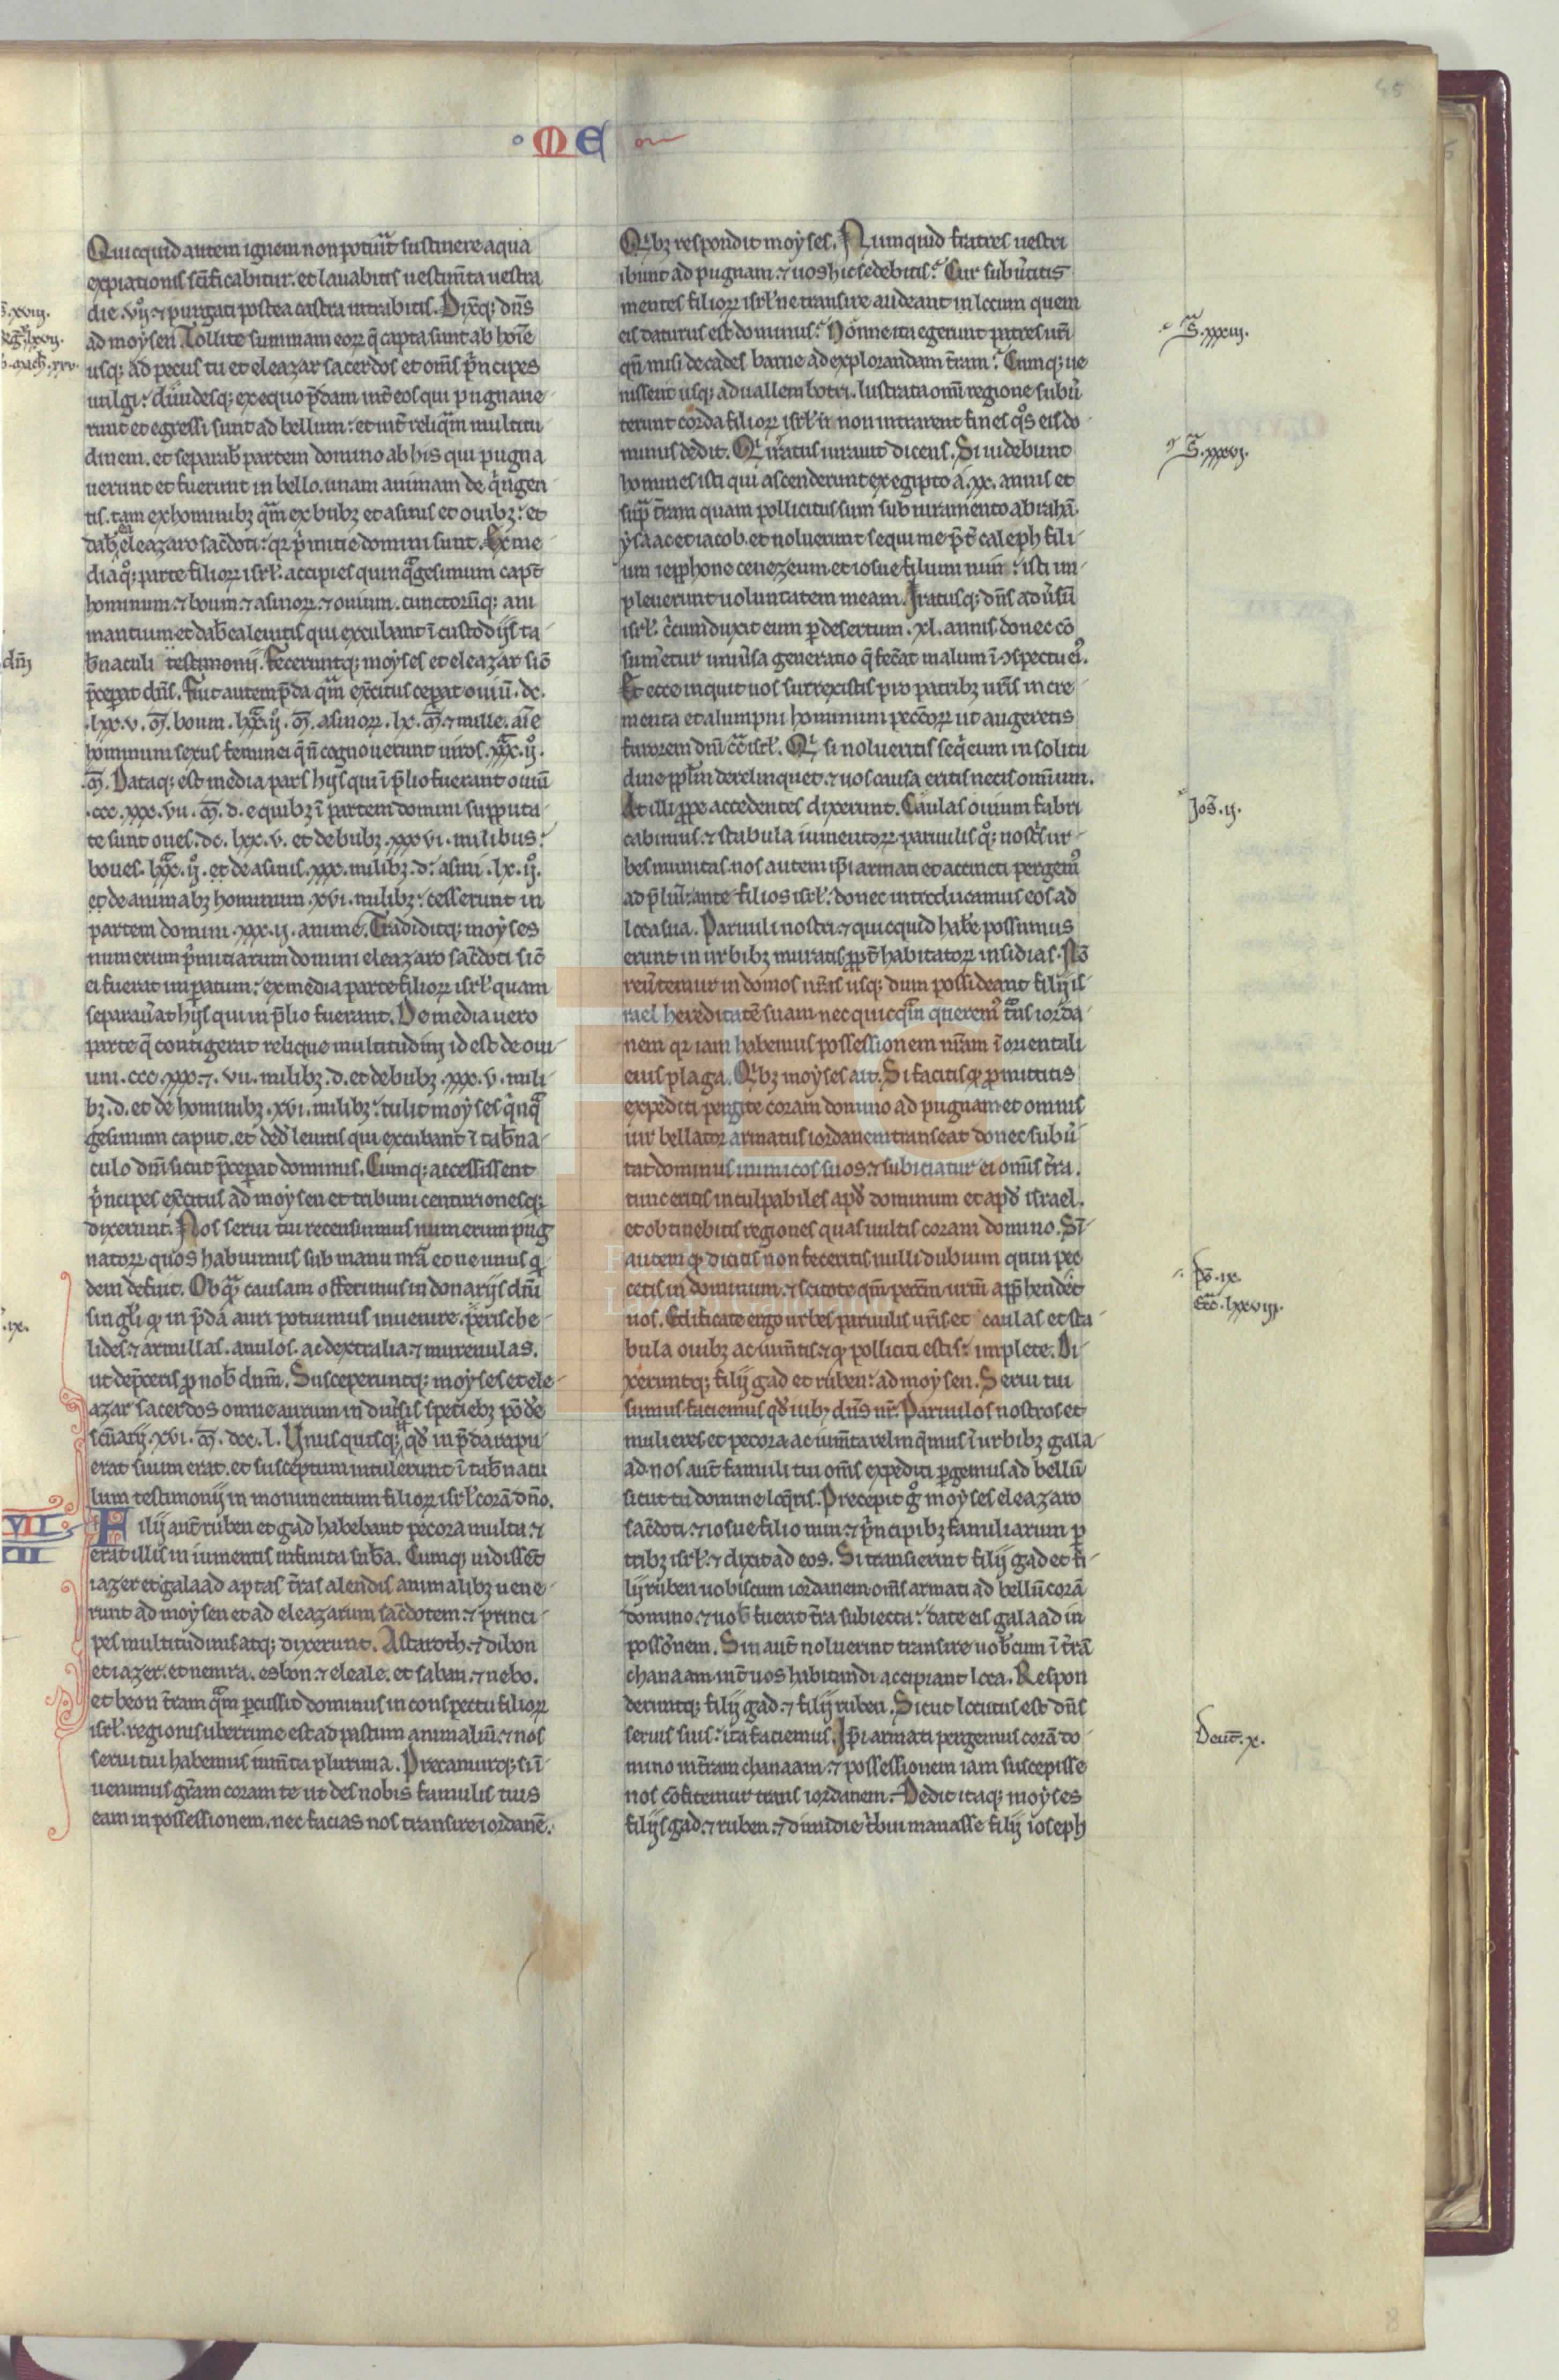 ME
Quicquid autem ignem non potu͛it sustinere aqua
expiationis sc̄ificabitur. et lauabitis uestim̄ta uestra
die .vijº. ⁊ purgati postea castra intrabitis. Dixitq; dn̄s
ad moẏsen. Tollite summam eoꝝ q̄ capta sunt ab hoīe
usq; ad pecus tu et eleazar sacerdos et om̄s p̄ncipes
uulgi: diuidesq; ex equo p̄dam int̄ eos qui pugnaue
runt et egressi sunt ad bellum: et int̄ reliq̄m multitu
dinem. et separab̄ partem domino ab his qui pugna
uerunt et fuerunt in bello. unam animam de q̄ngen
tis. tam ex hominibꝫ q̄m ex bubꝫ et asinis et ouibꝫ: et
dab̄ ea eleazaro sac̄doti: qꝛ p̄mitie domini sunt. Ex me
dia qº; parte filioꝝ isrł. accipies quinq̄gesimum capt̄
hominum. ⁊ boum. ⁊ asinoꝝ. ⁊ ouium. cunctorūq; ani
mantium et dab̄ ea leuitis qui excubant ī custodijs ta
b̄naculi testimonij. Feceruntq; moẏses et eleazar sic̄
p̄ceperat dn̄s. Fuit autem p̄da q̄m exc̄itus ceperat ouiū. dc.
.lxx.v. m̄. boum. lxx.ijº. m̄. asinoꝝ. lx. m̄. ⁊ mille. aīe
hominum sexus feminei q̄ n̄ cognouerunt uiros. xxx.ijº.
m̄. Dataq; est media pars hijs qui ī p̄lio fuerant ouiū
.ccc.xxx.vii. m̄. d. e quibꝫ ī partem domini supputa
te sunt oues. dc. lxx.v. et de bubꝫ .xxxvi. milibus:
boues. lxx.ijº. et de asinis. xxx. milibꝫ. d: asini .lx.ijº.
et de animabꝫ hominum .xvi. milibꝫ: cesserunt in
partem domini .xxx.ij. anime. Tradiditq; moẏses
numerum p̄mitiarum domini eleazaro sac̄doti sic̄
ei fuerat imꝑatum: ex media parte filioꝝ isrł quam
separau͛at hijs qui in p̄lio fuerant. De media uero
parte q̄ contigerat relique multitudini id est de oui
um. ccc.xxx.⁊.vii. milibꝫ. d. et de bubꝫ .xxx.v. mili
bꝫ. d. et de hominibꝫ .xvi. milibꝫ: tulit moẏses q̄nq̄
gesimum caput. et ded̄ leuitis qui excubant ī tab̄na
culo dn̄i sicut p̄ceperat dominus. Cumq; accessissent
p̄ncipes exc̄itus ad moẏsen et tribuni centurionesq;
dixerunt. Nos serui tui recensuimus numerum pug
natoꝝ quos habuimus sub manu nr̄a et ne unus q̄
dem defuit. Ob q̄m causam offerimus in donarijs dn̄i
singłi ꝙ in p̄da auri potuimus inuenire. perischeː
lides ⁊ armillas. anulos. ac dextralia. ⁊ murenulas.
ut dep̄ceris ꝓ nob̄ dn̄m. Susceperuntq; moẏses et ele
azar sacerdos omne aurum in diu͛sis speciebꝫ pōde
scl̄arij .xvi. m̄. dcc. l. Unusquisq; qd̄ in p̄da rapu
erat suum erat. et susceptum intulerunt ī tab̄nacu
lum testimonij in monumentum filioꝝ isrł corā dn̄o.
VII
Filij aut̄ ruben et gad habebant pecora multa. ⁊
erat illis in iumentis infinita sub̄a. Cumq; uidissēt
iazer et galaad aptas t̄ras alendis animalibꝫ uene
runt ad moẏsen et ad eleazarum sac̄dotem. ⁊ princi
pes multitudinis atq; dixerunt. Astaroth. ⁊ dibon
et iazer. et nemra. esbon. ⁊ eleale. et saban. ⁊ nebo.
et beon t̄ram q̄m ꝑcussit dominus in conspectu filioꝝ
isrł. regionis uberrime est ad pastum animaliū. ⁊ nos
serui tui habemus ium̄ta plurima. Precamurq; si ī
uenimus gr̄am coram te ut des nobis famulis tuis
eam in possessionem. nec facias nos transire iordanē.
Qⁱbꝫ respondit moẏses. Numquid fratres uestri
ibunt ad pugnam. ⁊ uos hic sedebitis? Cur subu͛titis
mentes filioꝝ isrł ne transire audeant in locum quem
eis daturus est dominus? Nonne ita egerunt patres ur̄i
qn̄ misi de cades barne ad explorandam t̄ram? Cumq; ue
nissent usq; ad uallem botri. lustrata om̄i regione subu͛
terunt corda filioꝝ isrł ut non intrarent fines qºs eis do
minus dedit. Qⁱ iratus iurauit dicens. Si uidebunt
homines isti qui ascenderunt ex egipto a .xx. annis et
sup̄ t̄ram quam pollicitus sum sub iuramento abrahā.
ẏsaac et iacob. et noluerunt sequi me p̄t̄ caleph fili
um iepphone cenezeum et iosue filium nun: isti im
pleuerunt uoluntatem meam. Iratusq; dn̄s adu͛sū
isrł. c̄cumduxit eum ꝑ desertum .xl. annis donec cō
sumeretur uniu͛sa generatio q̄ fec̄at malum ī ꝯspectu eiꝰ.
Et ecce inquit uos surrexistis pro patribꝫ ur̄is incre
menta et alumpni hominum peccatoꝝ ut augeretis
furorem dn̄i cōt̄ isrł. Qⁱ si nolueritis seq̄ eum in solitu
dine ppłm derelinquet. ⁊ uos causa eritis necis omnium.
At illi ꝓpe accedentes dixerunt. Caulas ouium fabri
cabimus. ⁊ stabula iumentoꝝ. paruulis qº; nos̄t̄s ur
bes munitas. nos autem ip̄i armati et accincti pergemꝰ
ad p̄liū: ante filios isrł: donec introducamus eos ad
loca sua. Paruuli nostri. ⁊ quicquid habe͛ possumus
erunt in urbibꝫ muratis ꝓpt̄ habitatoꝝ insidias. Nō
reu͛temur in domos nr̄as usq; dum possideant filij is
rael hereditatē suam. nec quicq̄m queremꝰ t̄ns iorda
nem qꝛ iam habemus possessionem nr̄am ī orientali
eius plaga. Qⁱbꝫ moẏses ait. Si facitis ꝙ ꝓmittitis
expediti pergite coram domino ad pugnam et omnis
uir bellator armatus iordanem transeat donec subu͛
tat dominus inimicos suos. ⁊ subiciatur ei om̄is t̄ra.
tunc eritis inculpabiles apd̄ dominum et apd̄ israel.
et obtinebitis regiones quas uultis coram domino. Sī
autem ꝙ dicitis non feceritis nulli dubium quin pec
cetis in dominum. ⁊ scitote qm̄ pecc̄m ur̄m app̄hendet
uos. Edificate ergo urbes paruulis ur̄is et caulas et sta
bula ouibꝫ ac ium̄tis. ⁊ ꝙ polliciti estis: implete. Di
xeruntq; filij gad et ruben: ad moẏsen. Serui tui
sumus. faciemus qd̄ iubꝫ dn̄s nr̄. Paruulos nostros et
mulieres et pecora ac ium̄ta relinq̄mus ī urbibꝫ gala
ad. nos aut̄ famuli tui om̄s expediti ꝑgemus ad bellū
sicut tu domine loq̄ris. Precepit gº moẏses eleazaro
sac̄doti. ⁊ iosue filio nun. ⁊ p̄ncipibꝫ familiarum ꝑ
tribꝫ isrł. ⁊ dixit ad eos. Si transierint filij gad et fi
lij ruben uobiscum iordanem. om̄s armati ad bellū corā
domino. ⁊ uob̄ fuerit t̄ra subiecta: date eis galaad in
poss̄onem. Sin aut̄ noluerint transire uob̄cum ī t̄rā
chanaam. int̄ uos habitandi accipiant loca. Respon
deruntq; filij gad. ⁊ filij ruben. Sicut locutus est dn̄s
seruis suis: ita faciemus. Ip̄i armati pergemus corā do
mino in t̄ram chanaam. ⁊ possessionem iam suscepisse
nos cōfitemur trans iordanem. Dedit itaq; moẏses
filijs gad. ⁊ ruben. ⁊ dimidie t̄bui manasse filij ioseph
S̄. xxxiij.
S̄. xxxvj.
Jos̄. ij.
p̄s. ix.
Ecc̄. lxxviij.
Deut̄. x.